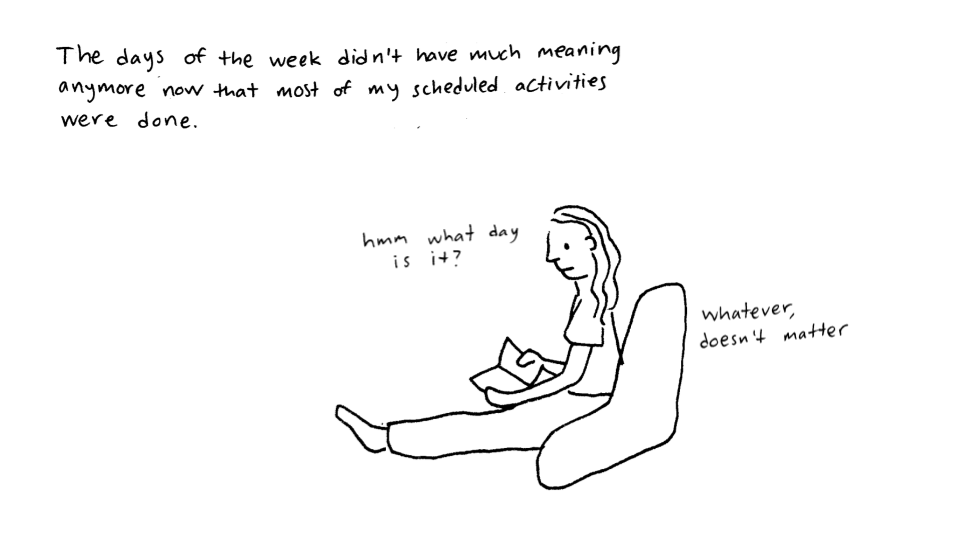 The days of the week didn't have much meaning
anymore now that most of my scheduled activities
were done.
hmm what day
is it?
whatever,
doesn't matter